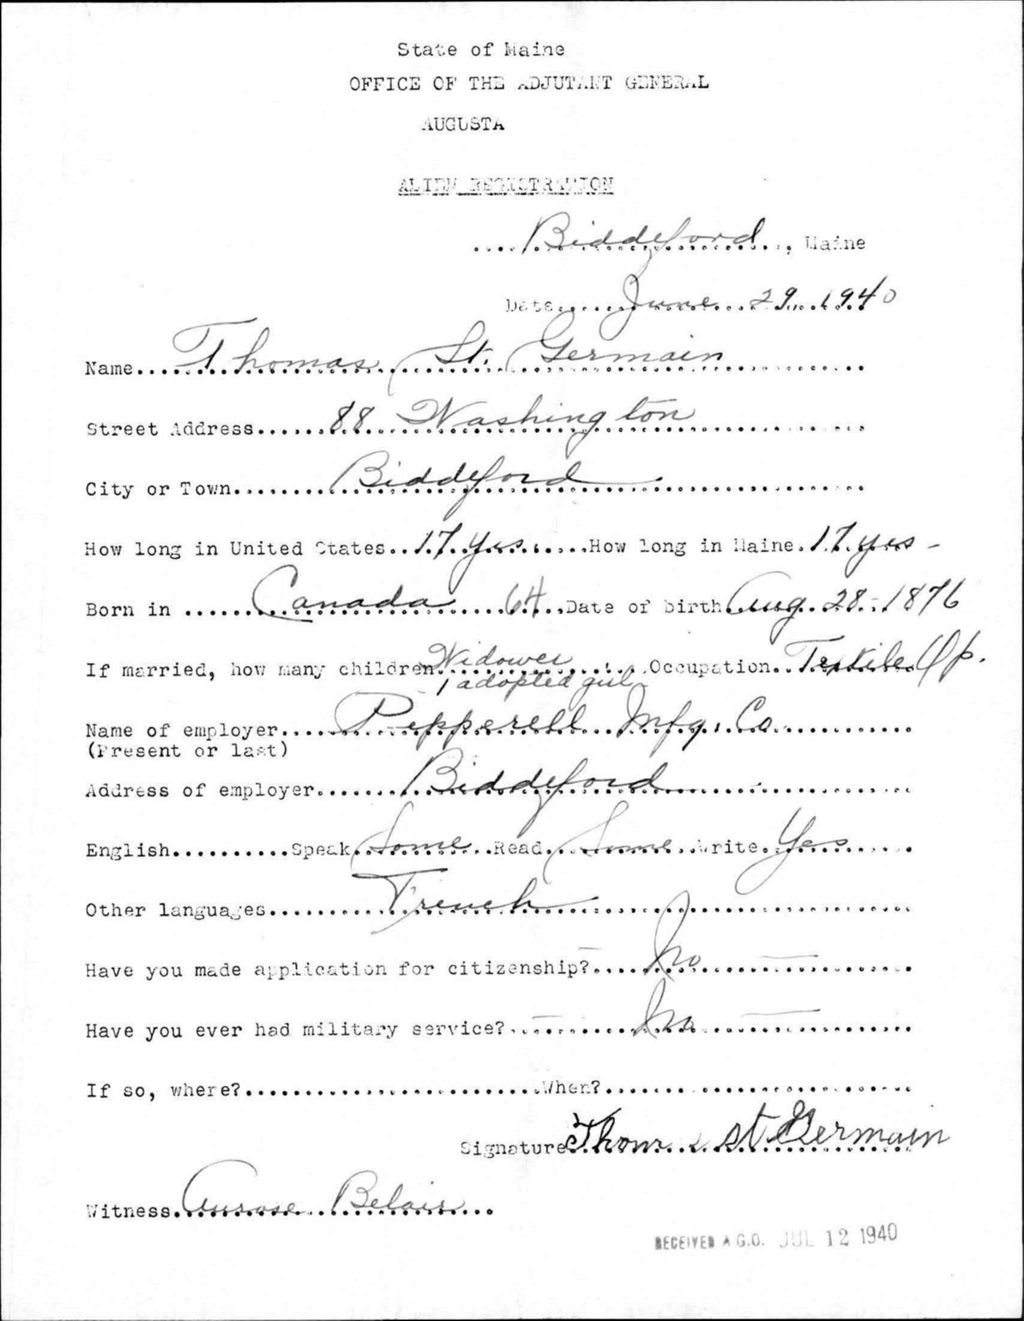 State of Maine
OFFICE OF THE ADJUTANT GENERAL
AUGUSTA
ALIEN REGISTRATION
Biddeford, Maine
Date June 29, 1940
Name Thomas St. Germain
Street Address 88 Washington
City or Town Biddeford
How long in United States 17 yrs How long in Maine 17 yrs -
Born in Canada 64 Date of birth Aug. 28 - 1876
If married, how many children Widower 1 adopted girl Occupation Textile Op.
Name of employer Pepperell Mfg. Co.
(Present or last)
Address of employer Biddeford
English Speak Some Read Some Write Yes
Other languages French
Have you made application for citizenship? No
Have you ever had military service? No
If so, where? When?
Signature Thomas St Germain
Witness Belair
RECEIVED A.G.O. JUL 12 1940